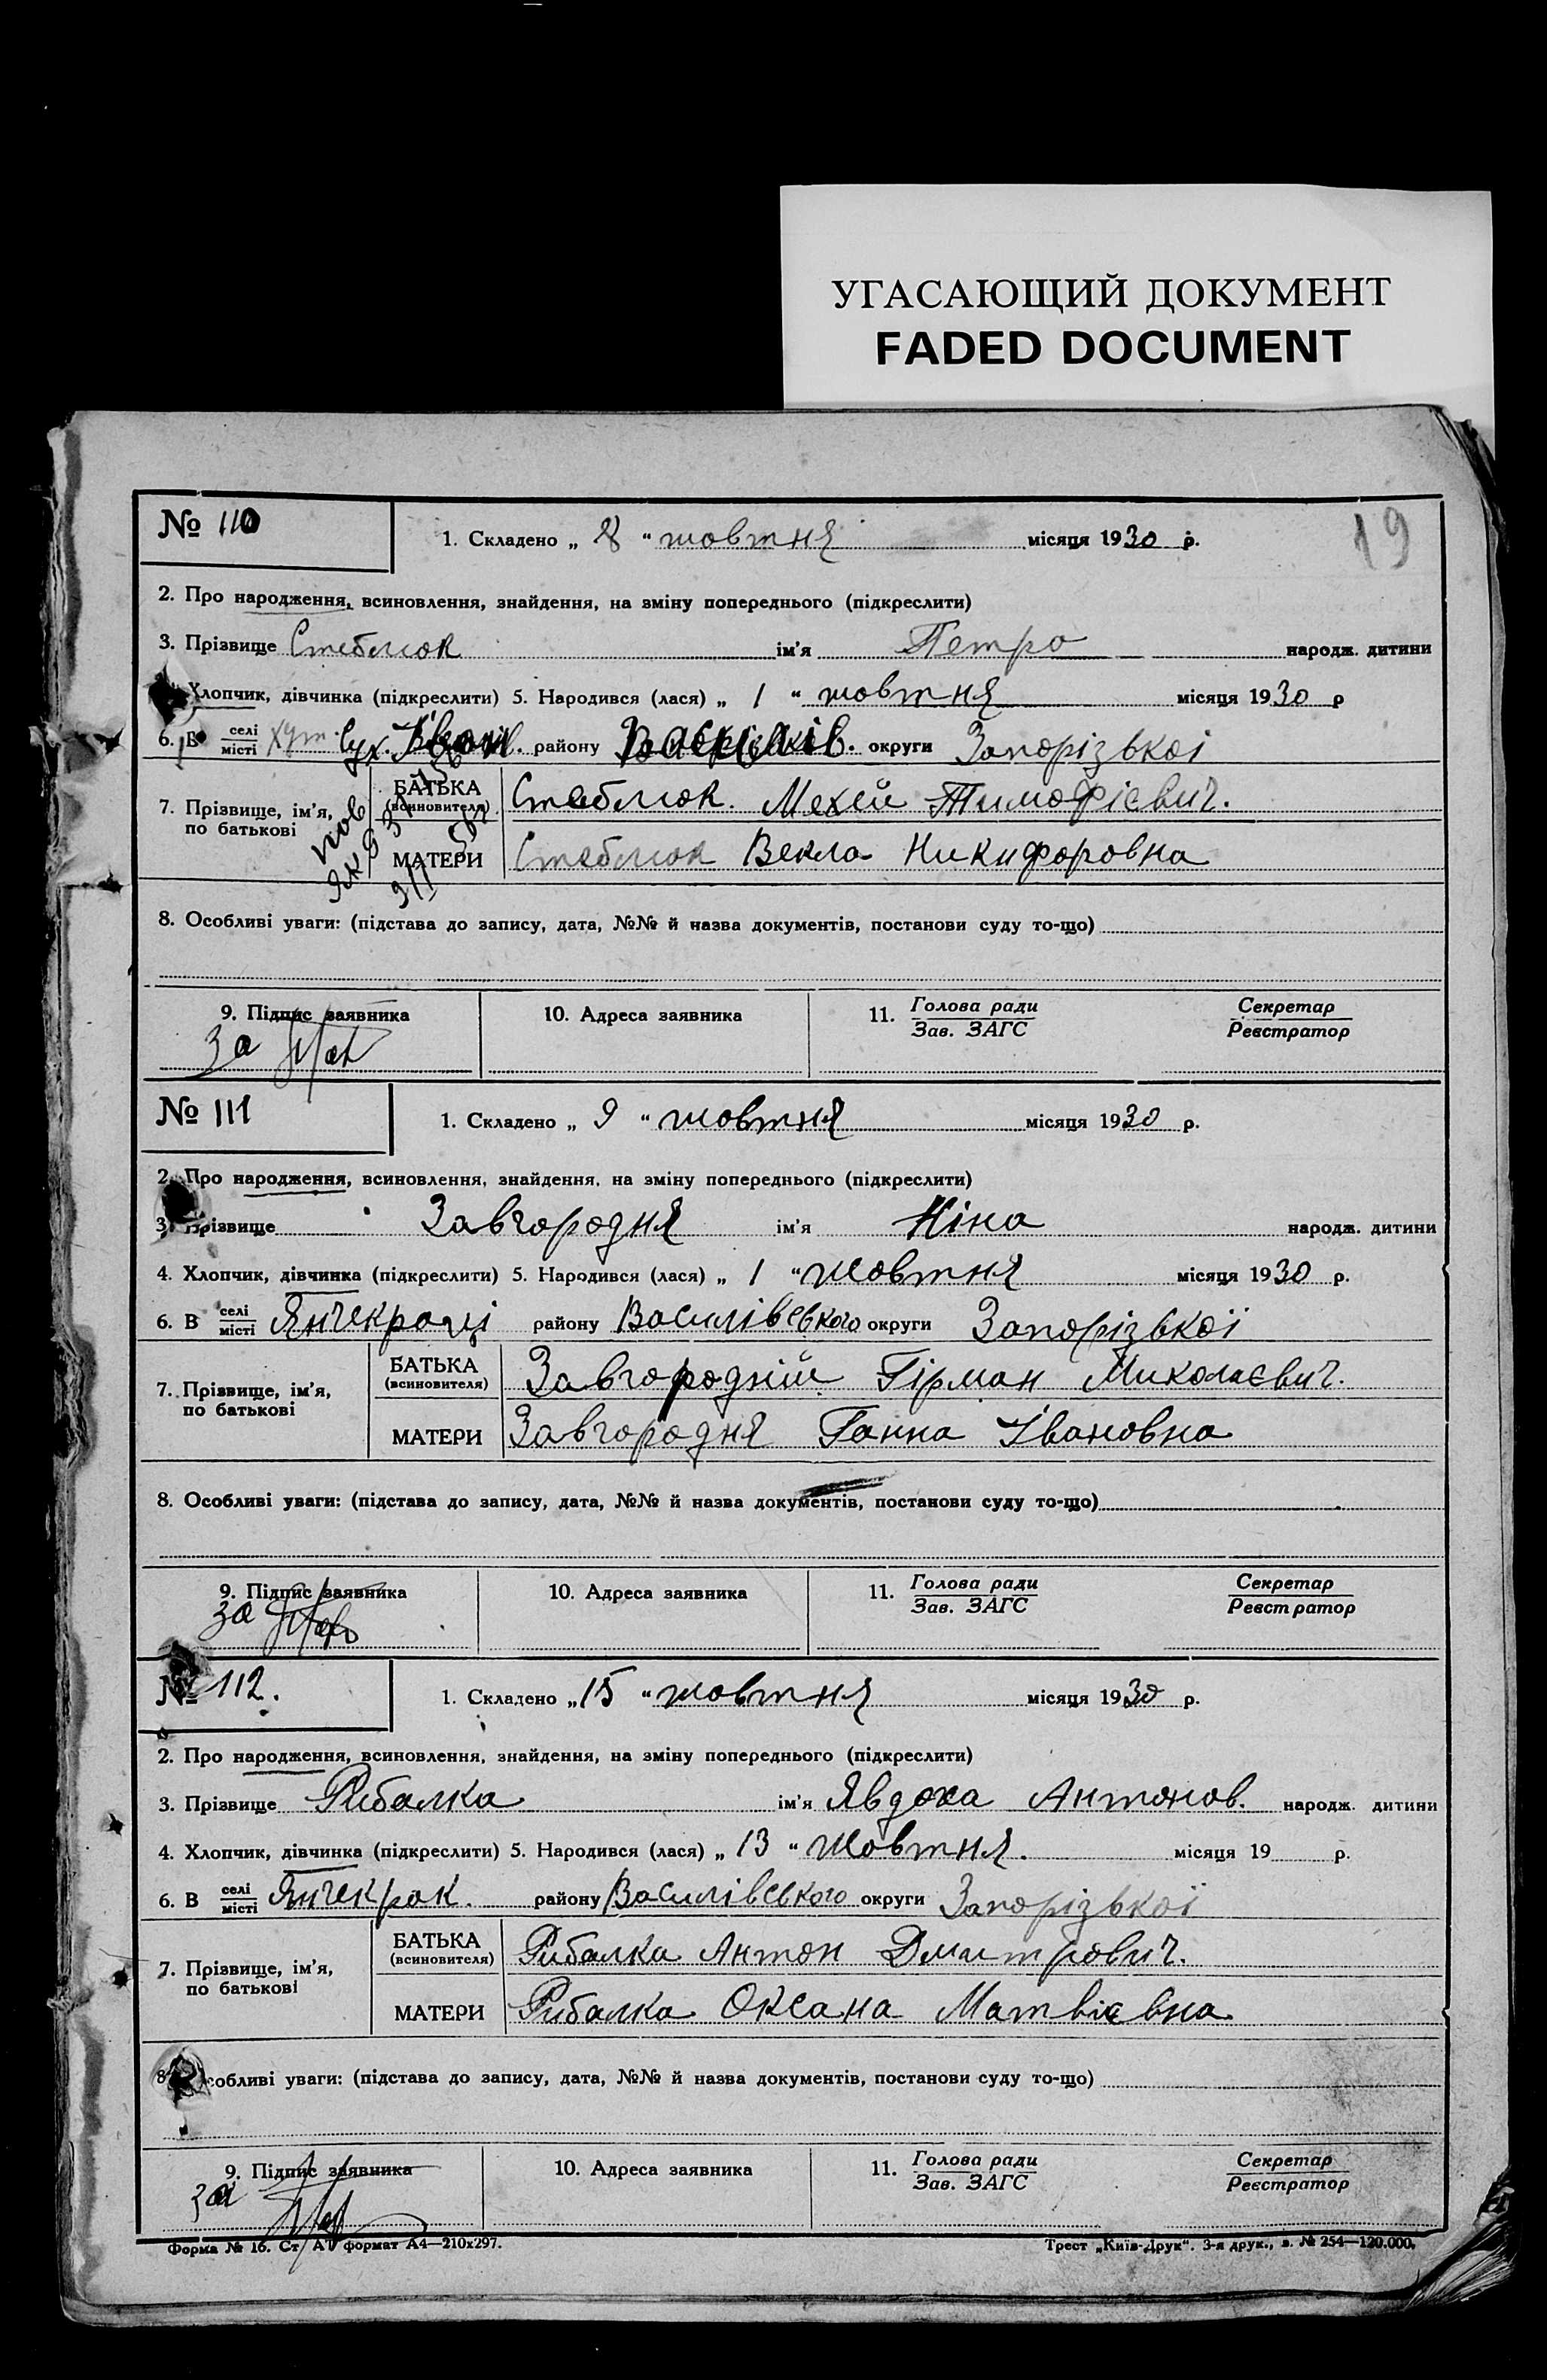 УГАСАЮЩИЙ ДОКУМЕНТ
FADED DOCUMENT
19
№ 110
1. Складено „ 8 “ жовтня місяця 1930 р.
2. Про народження, всиновлення, знайдення, на зміну попереднього (підкреслити)
3. Прізвище Стеблюк ім'я Петро народж. дитини
Хлопчик, дівчинка (підкреслити) 5. Народився (лася) „ 1 “ жовтня місяця 1930 р
6. В селі місті хут. району округи Запорізької
7. Прізвище, ім'я, по батькові
БАТЬКА (всиновителя) Стеблюк. Мехей Тимофієвич.
МАТЕРИ Стеблюк Векла Никифоровна
8. Особливі уваги: (підстава до запису, дата, №№ й назва документів, постанови суду то-що)
9. Підпис заявника 10. Адреса заявника 11. Голова ради Зав. ЗАГС Секретар Реєстратор
за
№ 111
1. Складено „ 9 “ жовтня місяця 1930 р.
2. Про народження, всиновлення, знайдення, на зміну попереднього (підкреслити)
3. Прізвище Завгородня ім'я Ніна народж. дитини
4. Хлопчик, дівчинка (підкреслити) 5. Народився (лася) „ 1 “ жовтня місяця 1930 р.
6. В селі місті Янчекраці району Василівського округи Запорізької
7. Прізвище, ім'я, по батькові
БАТЬКА (всиновителя) Завгородній Гірман Миколаєвич.
МАТЕРИ Завгородня Ганна Івановна
8. Особливі уваги: (підстава до запису, дата, №№ й назва документів, постанови суду то-що)
9. Підпис заявника 10. Адреса заявника 11. Голова ради Зав. ЗАГС Секретар Реєстратор
за
№ 112.
1. Складено „ 15 “ жовтня місяця 1930 р.
2. Про народження, всиновлення, знайдення, на зміну попереднього (підкреслити)
3. Прізвище Рибалка ім'я Явдоха Антонов. народж. дитини
4. Хлопчик, дівчинка (підкреслити) 5. Народився (лася) „ 13 “ жовтня. місяця 19 р.
6. В селі місті Янчекрак. району Василівського округи Запорізької
7. Прізвище, ім'я, по батькові
БАТЬКА (всиновителя) Рибалка Антон Дмитрович.
МАТЕРИ Рибалка Оксана Матвієвна
8. Особливі уваги: (підстава до запису, дата, №№ й назва документів, постанови суду то-що)
9. Підпис заявника 10. Адреса заявника 11. Голова ради Зав. ЗАГС Секретар Реєстратор
за
Форма № 16. Ст. А1 формат А4—210х297.
Трест „Київ-Друк“. 3-я друк., з. № 254—120.000.